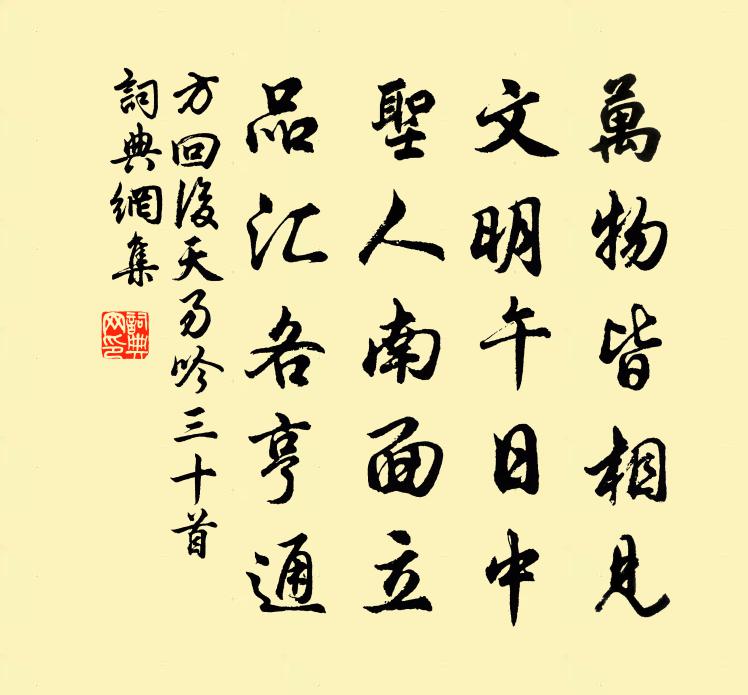 萬物皆相見
文明午日中
聖人南面立
品汇各亨通
方回後天易吟三十首
詞典網集
詞典網印